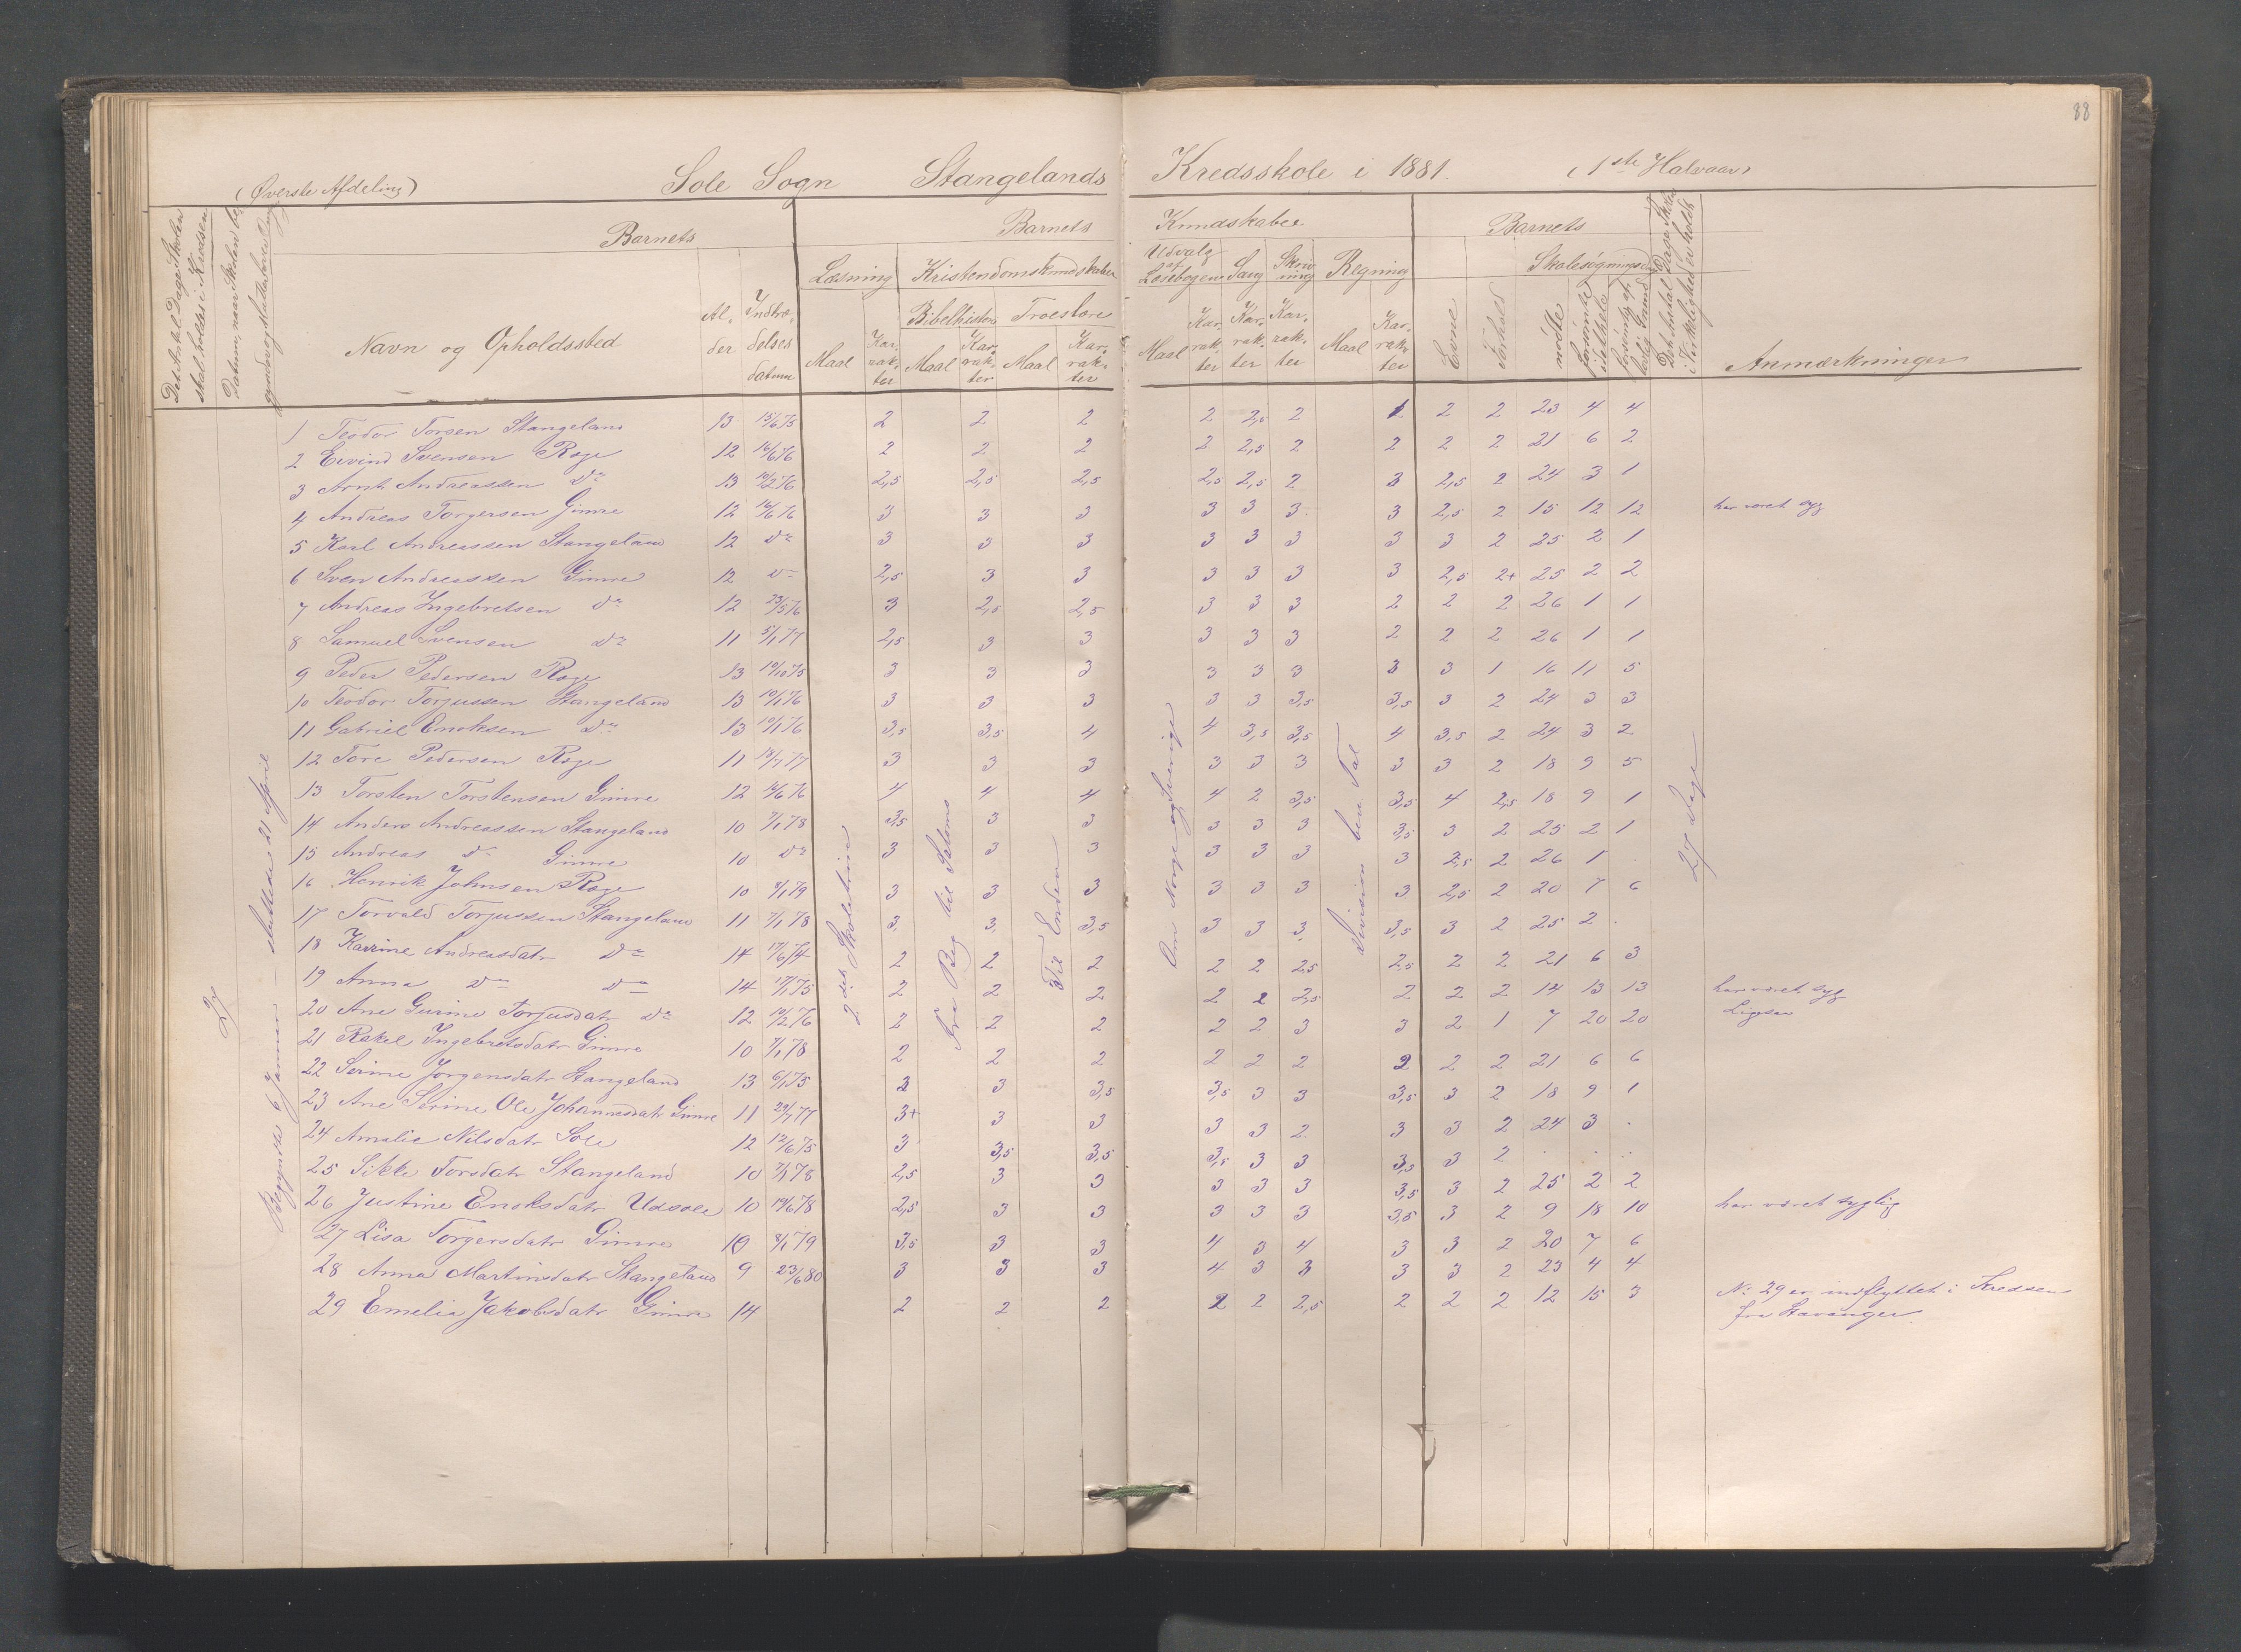 88
(Øverste Afdeling) Sole Sogn Stangelands Kredsskole i 1881. (1ste Halvaar)
Det Antal Dage Skolen skal holdes i Kredsen
Datum, naar Skolen be-
Barnets
Navn og Opholdssted
Al-der
Indtræ-delses datum
Barnets Kundskaber
Læsning
Maal
Kar-rak-ter
Kristendomskundskaber
Bibelhistorie
Maal
Kar-rak-ter
Troeslære
Maal
Kar-rak-ter
Udvalg af Læsebogen
Maal
Kar-rak-ter
Sang
Kar-rak-ter
Skriv-ning
Kar-rak-ter
Regning
Maal
Kar-rak-ter
Barnets
Evne
Forhold
Skolesøgningsdage
mødte
forsømte i det hele
forsømte af lovlig Grund
Det Antal Dage Skolen i Virkelighed er holdt
Anmærkninger
27
Begyndte 6 Januar – sluttede 21 April
2det Skoletrin
Fra Beg til Salomo
Til Enden
Om Norge og Sverige
Division ben. Tal
27 Dage
1 Teodor Torsen Stangeland 13 15/6 75 2 2 2 2 2,5 2 1 2 2 23 4 4
2 Eivind Svensen Røge 12 16/6 76 2 2 2 2 2,5 2 2 2 2 21 6 2
3 Arnt Andreassen do 13 10/2 76 2,5 2,5 2,5 2,5 2,5 2 3 2,5 2 24 3 1
4 Andreas Torgersen Gimre 12 16/6 76 3 3 3 3 3 3 3 2,5 2 15 12 12 har været syg
5 Karl Andreassen Stangeland 12 do 3 3 3 3 3 3 3 3 2 25 2 1
6 Sven Andreassen Gimre 12 do 2,5 3 3 3 3 3 3 2,5 2+ 25 2 2
7 Andreas Ingebretsen do 12 23/5 76 3 2,5 2,5 3 3 3 2 2 2 26 1 1
8 Samuel Svensen do 11 5/1 77 2,5 3 3 3 3 3 2 2 2 26 1 1
9 Peder Pedersen Røge 13 10/10 75 3 3 3 3 3 3 3 3 1 16 11 5
10 Teodor Torjussen Stangeland 13 10/1 76 3 3 3 3 3 3,5 3,5 3 2 24 3 3
11 Gabriel Enoksen do 13 10/1 76 3,5 3,5 4 4 3,5 3,5 4 3,5 2 24 3 2
12 Tore Pedersen Røge 11 18/7 77 3 3 3 3 3 3 3 3 2 18 9 5
13 Torsten Torstensen Gimre 12 16/6 76 4 4 4 4 2 3,5 3,5 4 2,5 18 9 1
14 Anders Andreassen Stangeland 10 7/1 78 3,5 3 3 3 3 3 3,5 3 2 25 2 1
15 Andreas do Gimre 10 do 3 3 3 3 3 3 3 2,5 2 26 1 .
16 Henrik Johnsen Røge 10 8/1 79 3 3 3 3 3 3 3 2,5 2 20 7 6
17 Torvald Torjussen Stangeland 11 7/1 78 3 3 3,5 3 3 3 3,5 3 2 25 2 .
18 Karine Andreasdatr do 14 17/6 74 2 2 2 2 2 2,5 2,5 2 2 21 6 3
19 Anna do do 14 17/1 75 2 2 2 2 2 2,5 2 2 2 14 13 13 har været syg
20 Ane Gurine Torjusdatr do 12 10/2 76 2 2 2 2 2 3 3 2 1 7 20 20 Ligesaa
21 Rakel Ingebretsdatr Gimre 10 7/1 78 2 2 2 2 2 2 2 2 2 21 6 6
22 Serine Jørgensdatr Stangeland 13 6/1 75 3 3 3,5 3,5 3 3 3,5 3 2 18 9 1
23 Ane Serine Ole Johannesdatr Gimre 11 29/1 77 3+ 3 3 3 3 2 3 3 2 24 3 .
24 Amalie Nilsdatr Sole 12 12/6 75 3 3,5 3,5 3,5 3 3 3,5 3 2 . . .
25 Sikke Torsdatr Stangeland 10 7/1 78 2,5 3 3 3 3 3 3,5 3 2 25 2 2
26 Justine Enoksdatr Udsole 10 19/6 78 2,5 3 3 3 3 3 3,5 3 2 9 18 10 har været sygelig
27 Lisa Torgersdatr Gimre 10 8/1 79 3,5 3 3 4 3 4 3 3 2 20 7 6
28 Anna Martinsdatr Stangeland 9 23/6 80 3 3 3 4 3 3 3 3 2 23 4 4
29 Emelia Jakobsdatr Gimre 14 2 2 2 2 2 2,5 2 2 2 12 15 3 No 29 er indflyttet i Kredsen
fra Stavanger